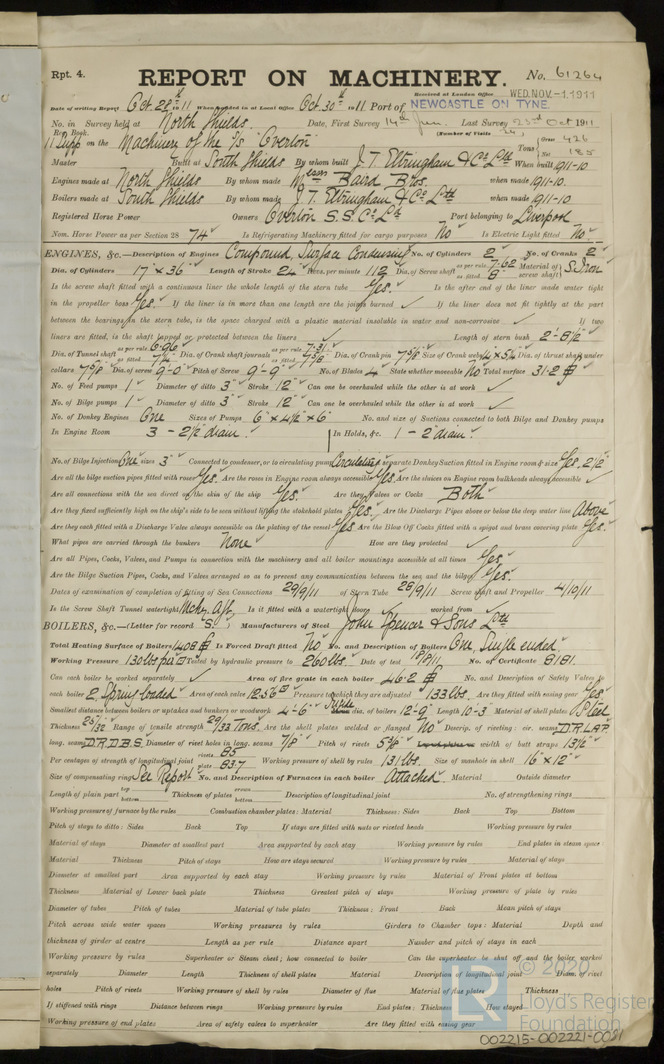 Rpt. 4. REPORT ON MACHINERY. No. 61264
Received at London Office WED. NOV. -1. 1911
Date of writing Report Oct. 28th 1911 When handed in at Local Office Oct. 30th 1911 Port of NEWCASTLE ON TYNE.
No. in Survey held at North Shields. Date, First Survey 14th Jan. Last Survey 23rd Oct 1911
Reg. Book. (Number of Visits 24)
11 Supp on the Machinery of the S/s "Overton" Tons Gross 426 Net 185
Master Built at South Shields By whom built J. T. Eltringham & Co. Ltd When built 1911-10.
Engines made at North Shields By whom made Messrs Baird Bros. when made 1911-10.
Boilers made at South Shields By whom made J. T. Eltringham & Co. Ltd when made 1911-10.
Registered Horse Power Owners Overton S.S. Co. Ltd Port belonging to Liverpool
Nom. Horse Power as per Section 28 74 Is Refrigerating Machinery fitted for cargo purposes No Is Electric Light fitted No
ENGINES, &c.—Description of Engines Compound, Surface Condensing No. of Cylinders 2 No. of Cranks 2
Dia. of Cylinders 17" x 36" Length of Stroke 24" Revs. per minute 112 Dia. of Screw shaft as per rule 7.62 as fitted 8" Material of screw shaft
Is the screw shaft fitted with a continuous liner the whole length of the stern tube Yes. Is the after end of the liner made water tight
in the propeller boss Yes. If the liner is in more than one length are the joints burned ✓ If the liner does not fit tightly at the part
between the bearings in the stern tube, is the space charged with a plastic material insoluble in water and non-corrosive ✓ If two
liners are fitted, is the shaft lapped or protected between the liners ✓ Length of stern bush 2'-8½"
Dia. of Tunnel shaft as per rule 6.96 as fitted 7¼" Dia. of Crank shaft journals as per rule 7.31 as fitted 7⅝" Dia. of Crank pin 7⅝" Size of Crank webs Dia. of thrust shaft under
collars 7⅝" Dia. of screw 9'-0" Pitch of Screw 9'-9" No. of Blades 4 State whether moveable No Total surface 31.2
No. of Feed pumps 1 Diameter of ditto 3" Stroke 12" Can one be overhauled while the other is at work ✓
No. of Bilge pumps 1 Diameter of ditto 3" Stroke 12" Can one be overhauled while the other is at work ✓
No. of Donkey Engines One Sizes of Pumps 6" x 4½" x 6" No. and size of Suctions connected to both Bilge and Donkey pumps
In Engine Room 3 - 2½" diam. In Holds, &c. 1 - 2" diam.
No. of Bilge Injections One sizes 3" Connected to condenser, or to circulating pump Circulating Is a separate Donkey Suction fitted in Engine room & size Yes. 2½"
Are all the bilge suction pipes fitted with roses Yes. Are the roses in Engine room always accessible Yes. Are the sluices on Engine room bulkheads always accessible ✓
Are all connections with the sea direct on the skin of the ship Yes. Are they Valves or Cocks Both
Are they fixed sufficiently high on the ship's side to be seen without lifting the stokehold plates Yes. Are the Discharge Pipes above or below the deep water line Above
Are they each fitted with a Discharge Valve always accessible on the plating of the vessel Yes Are the Blow Off Cocks fitted with a spigot and brass covering plate Yes.
What pipes are carried through the bunkers None How are they protected ✓
Are all Pipes, Cocks, Valves, and Pumps in connection with the machinery and all boiler mountings accessible at all times Yes
Are the Bilge Suction Pipes, Cocks, and Valves arranged so as to prevent any communication between the sea and the bilges Yes.
Dates of examination of completion of fitting of Sea Connections 29/9/11 of Stern Tube 28/9/11 Screw shaft and Propeller 4/10/11
Is the Screw Shaft Tunnel watertight Mchy. Aft. Is it fitted with a watertight door worked from
BOILERS, &c.—(Letter for record S.) Manufacturers of Steel John Spencer & Sons Ltd
Total Heating Surface of Boilers 1408 Is Forced Draft fitted No No. and Description of Boilers One, Single ended.
Working Pressure 130 lbs per □" Tested by hydraulic pressure to 260 lbs. Date of test No. of Certificate 8181.
Can each boiler be worked separately ✓ Area of fire grate in each boiler 46.2 No. and Description of Safety Valves to
each boiler 2 Spring loaded Area of each valve 12.56 □" Pressure to which they are adjusted 133 lbs. Are they fitted with easing gear Yes
Smallest distance between boilers or uptakes and bunkers or woodwork 4'-6" Inside dia. of boilers 12'-9" Length 10'-3" Material of shell plates Steel
Thickness 25/32 Range of tensile strength 29/33 Tons. Are the shell plates welded or flanged No Descrip. of riveting: cir. seams D.R. LAP
long. seams D.R.D.B.S. Diameter of rivet holes in long. seams 7/8" Pitch of rivets 5⅜" width of butt straps 13½"
Per centages of strength of longitudinal joint rivets 85 plate 83.7 Working pressure of shell by rules 131 lbs. Size of manhole in shell 16" x 12"
Size of compensating ring See Report No. and Description of Furnaces in each boiler Attached. Material Outside diameter
Length of plain part top bottom Thickness of plates crown bottom Description of longitudinal joint No. of strengthening rings
Working pressure of furnace by the rules Combustion chamber plates: Material Thickness: Sides Back Top Bottom
Pitch of stays to ditto: Sides Back Top If stays are fitted with nuts or riveted heads Working pressure by rules
Material of stays Diameter at smallest part Area supported by each stay Working pressure by rules End plates in steam space
Material Thickness Pitch of stays How are stays secured Working pressure by rules Material of stays
Diameter at smallest part Area supported by each stay Working pressure by rules Material of Front plates at bottom
Thickness Material of Lower back plate Thickness Greatest pitch of stays Working pressure of plate by rules
Diameter of tubes Pitch of tubes Material of tube plates Thickness: Front Back Mean pitch of stays
Pitch across wide water spaces Working pressures by rules Girders to Chamber tops: Material Depth and
thickness of girder at centre Length as per rule Distance apart Number and pitch of stays in each
Working pressure by rules Superheater or Steam chest; how connected to boiler Can the superheater be shut off and the boiler worked
separately Diameter Length Thickness of shell plates Material Description of longitudinal joint Diam. of rivet
holes Pitch of rivets Working pressure of shell by rules Diameter of flue Material of flue plates Thickness
If stiffened with rings Distance between rings Working pressure by rules End plates: Thickness How stayed
Working pressure of end plates Area of safety valves to superheater Are they fitted with easing gear
© 2020
LR
Lloyd's Register
Foundation
002215-002221-0091